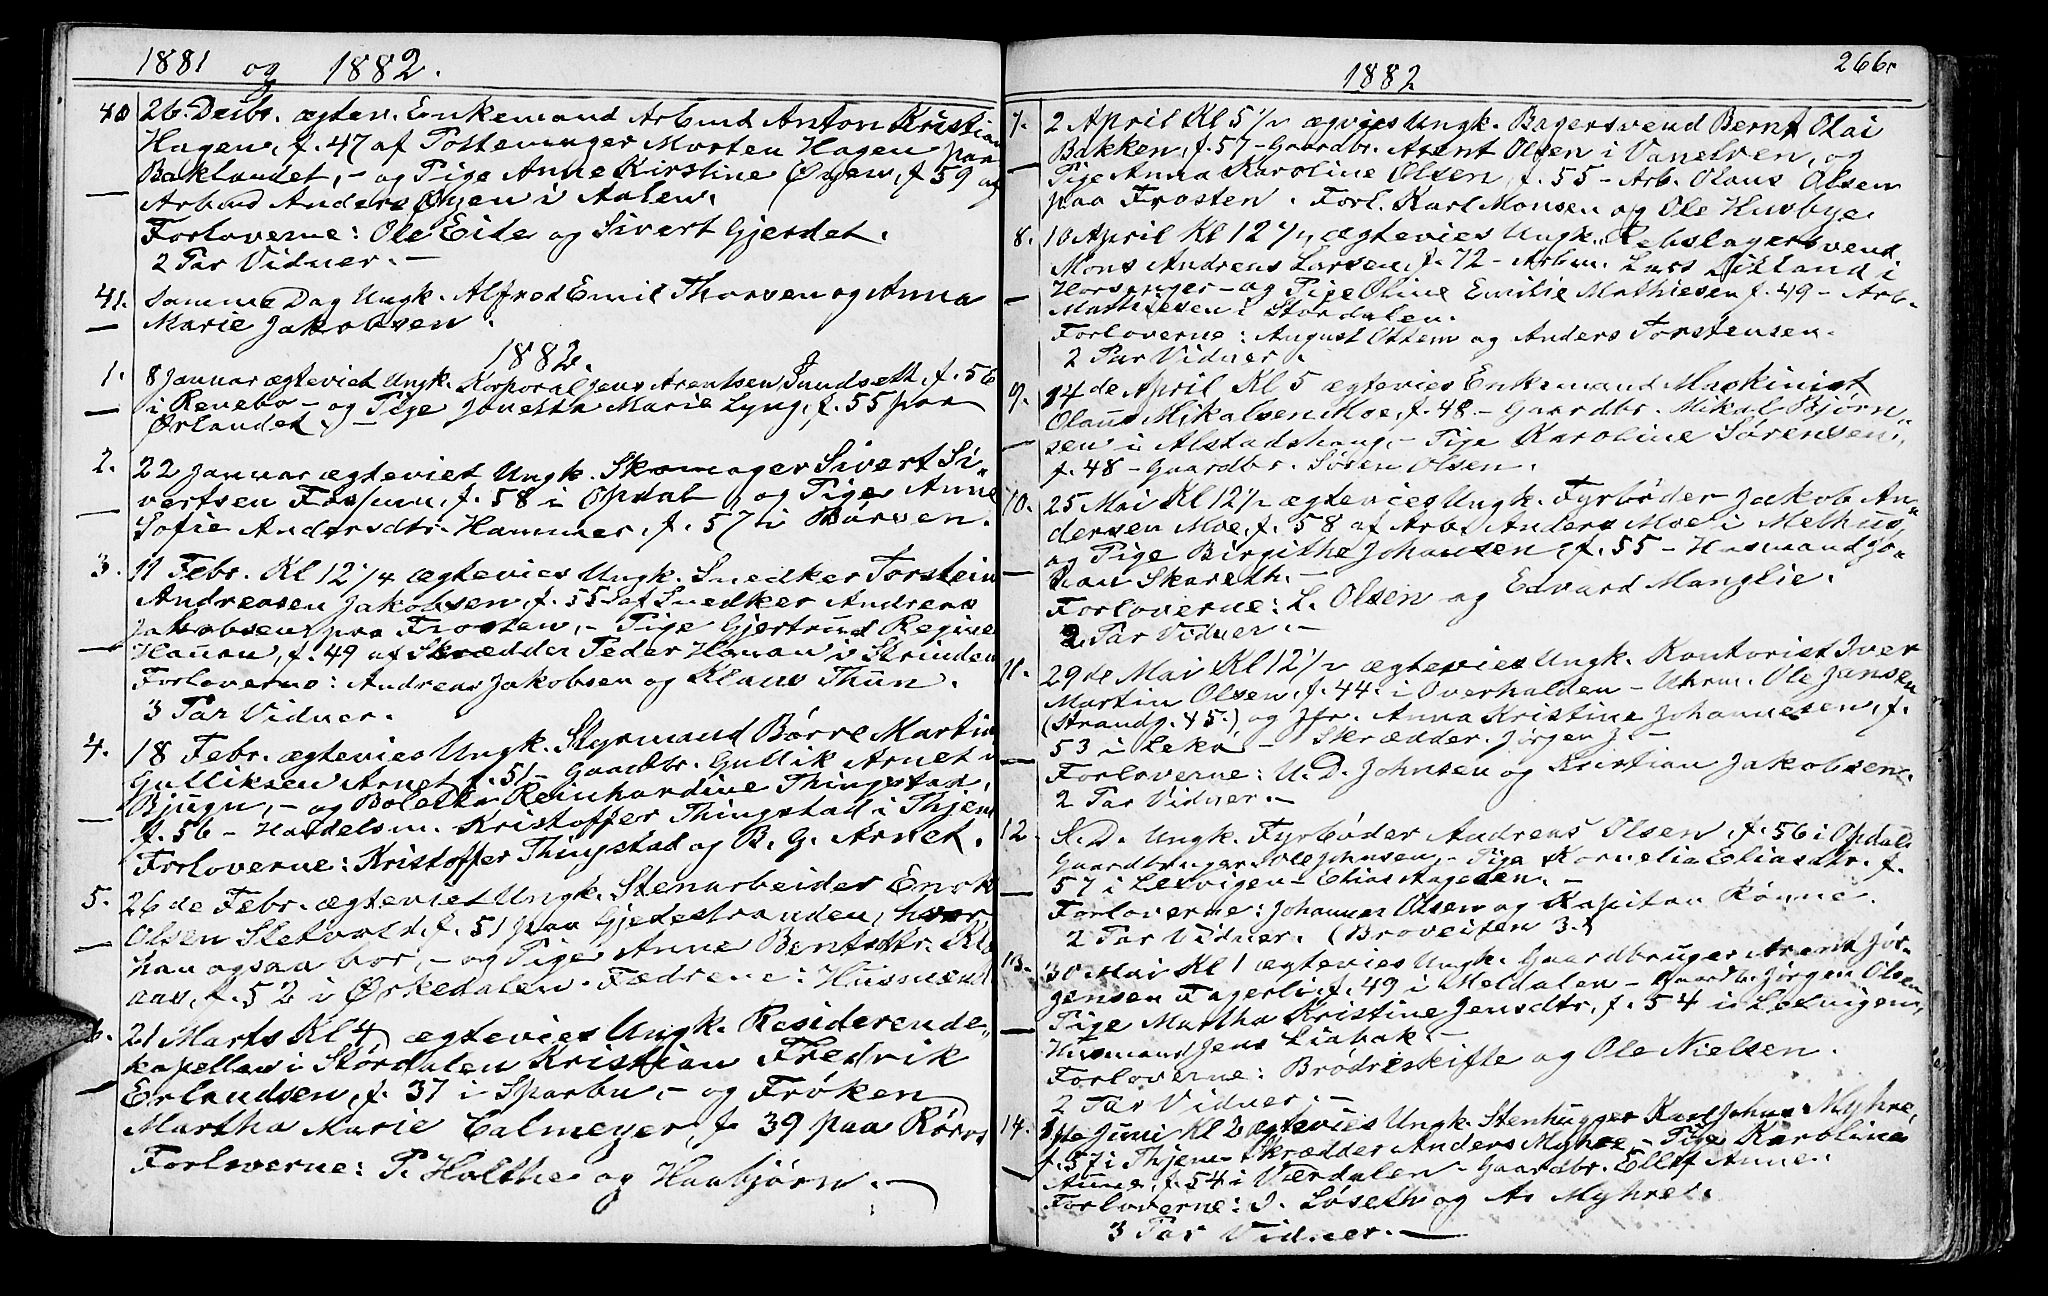 1881 og 1882.
40 26 Desbr. ægtev. Enkemand Arbmd Anton Kristian
Hagen, f. 47 af Morten Hagen paa
Baklandet, - og Pige Anne Kirstine Øyen, f. 59 af
Arbmd Anders Øyen i Aalen.
Forloverne: Ole Eide og Sivert Gjerdet.
2 Par Vidner. -
41. Samme Dag Ungk. Alfred Emil Thorsen og Anna
Marie Jakobsen.
1882.
1. 8 Januar ægteviet Ungk. Korporal Jens Arentsen Sundseth, f. 56
i Renebo - og Pige Marie Lyng, f. 55 paa
Ørlandet. -
2. 22 Januar ægteviet Ungk. Skomager Sivert Si„
vertsen f. 58 i Opdal, og Pige Anne
Sofie Andersdtr. Hammer, f. 57 i Børsen.
3. 11 Febr. Kl 12 1/4 ægtevies Ungk. Snedker Torstein
Andreasen Jakobsen, f. 55 af Snedker Andreas
Jakobsen paa Frosten, - Pige Gjertrud Regine
Haúan, f. 49 af Skrædder Peder Haúan i Strinden
Forloverne: Andreas Jakobsen og Klaus Thún.
3 Par Vidner.
4. 18 Febr. ægtevies Ungk. Styrmand Børre Martin
Gulliksen Arnet, f. 51 - Gaardbr. Gullik Arnet i
Bjúgn, - og Reinhardine Thingstad,
f. 56 - Handelsm. Kristoffer Thingstad i
Forloverne: Kristoffer Thingstad og B. G. Arnet.
5. 26 de Febr. ægteviet Ungk. Stenarbeider Enok
Olsen Sletvold, f. 51 paa Gjedestranden, hvor
han ogsaa bor, - og Pige Anne Bentsdtr. Kle
aas, f. 52 i Ørkedalen. Fædrene: Husmænd
6. 21 Marts Kl 4, ægtevies Ungk. Residerende„
kapellan i Størdalen Kristian Fredrik
Erlandsen, f. 37 i Sparbu, - og Frøken
Martha Marie Calmeyer, f. 39 paa Røros
Forloverne: P. Holthe og Haabjørn. -
266.
1882
7. 2 April Kl 5 1/2 ægvies Ungk. Bagersvend Bernt Olai
Bakken, f. 57 - Gaardbr. Arent Olsen i Vanelven, og
Pige Anna Karoline Olsen, f. 55 - Arb. Olaus Olsen
paa Frosten. Forl. Karl Monsen og Ole Husbye
8. 10 April Kl 12 1/2, ægtevies Ungk. Rebslagersvend
Mons Andreas Larsen, f. 72 - Arbm. Lars i
- og Pige Oline Emilie Mathiesen f. 49 - Arb.
Mathiesen i Størdalen.
Forloverne: August og Anders Torstensen.
2 Par Vidner.
9. 14 de April Kl 5 ægtevies Enkemand Maskinist
Olaus Mikalsen Moe, f. 48 - Gaardbr. Mikal Bjørn„
sen i Alstadshaug, - Pige Karoline Sørensen,
f. 48 - Gaardbr. Søren Olsen.
10. 25 Mai Kl 12 1/2 ægtevies Ungk. Fyrbøder Jakob An„
dersen Moe, f. 58 af Arb. Anders Moe i Melhus,
og Pige Birgithe Johansen, f. 55 - Husmand Jo„
han Skareth. -
Forloverne: L. Olsen og Edvard Manglie.
2 Par Vidner. -
11. 29 de Mai Kl 12 1/2 ægtevies Ungk. Kontorist Iver
Martin Olsen, f. 44. i Overhalden - Uhrm. Ole Jansen
(Strandg. 45.) og Jfr. Anna Kristine Johannesen, f.
53 i Leka - Skrædder. Jørgen J. -
Forloverne: U. D. Johnsen og Kristian Jakobsen.
2 Par Vidner. -
12. S. D. Ungk. Fyrbøder Andreas Olsen, f. 56 i Opdal
Gaardbruger Ole Johnsen, - Pige Kornelia Eliasdtr. f.
57 i Lexvigen - Elias
Forloverne: Johannes Olsen og Kapitan Rønne.
2 Par Vidner. (Broveiten 3.)
13. 30 Mai Kl 1 ægtevies Ungk. Gaardbruger Arent Jør„
gensen Fagerli, f. 49 i Meldalen - Gaardb. Jørgen Olsen
Pige Martha Kristine Jensdtr. f. 54 i Lexvigen,
Husmand Jens Liabak. -
Forloverne: Brødreskifte og Ole Nielsen.
2 Par Vidner. -
14. de Juni Kl 2 ægtevies Ungk. Stenhugger Karl Johan Myhre,
f. 57 i - Skrædder Anders Myhre - Pige Karoline
Aune, f. 54 i Værdalen - Gaardbr. Ellef Aune.
Forloverne: J. Løseth og A. Myhre.
3 Par Vidner. -